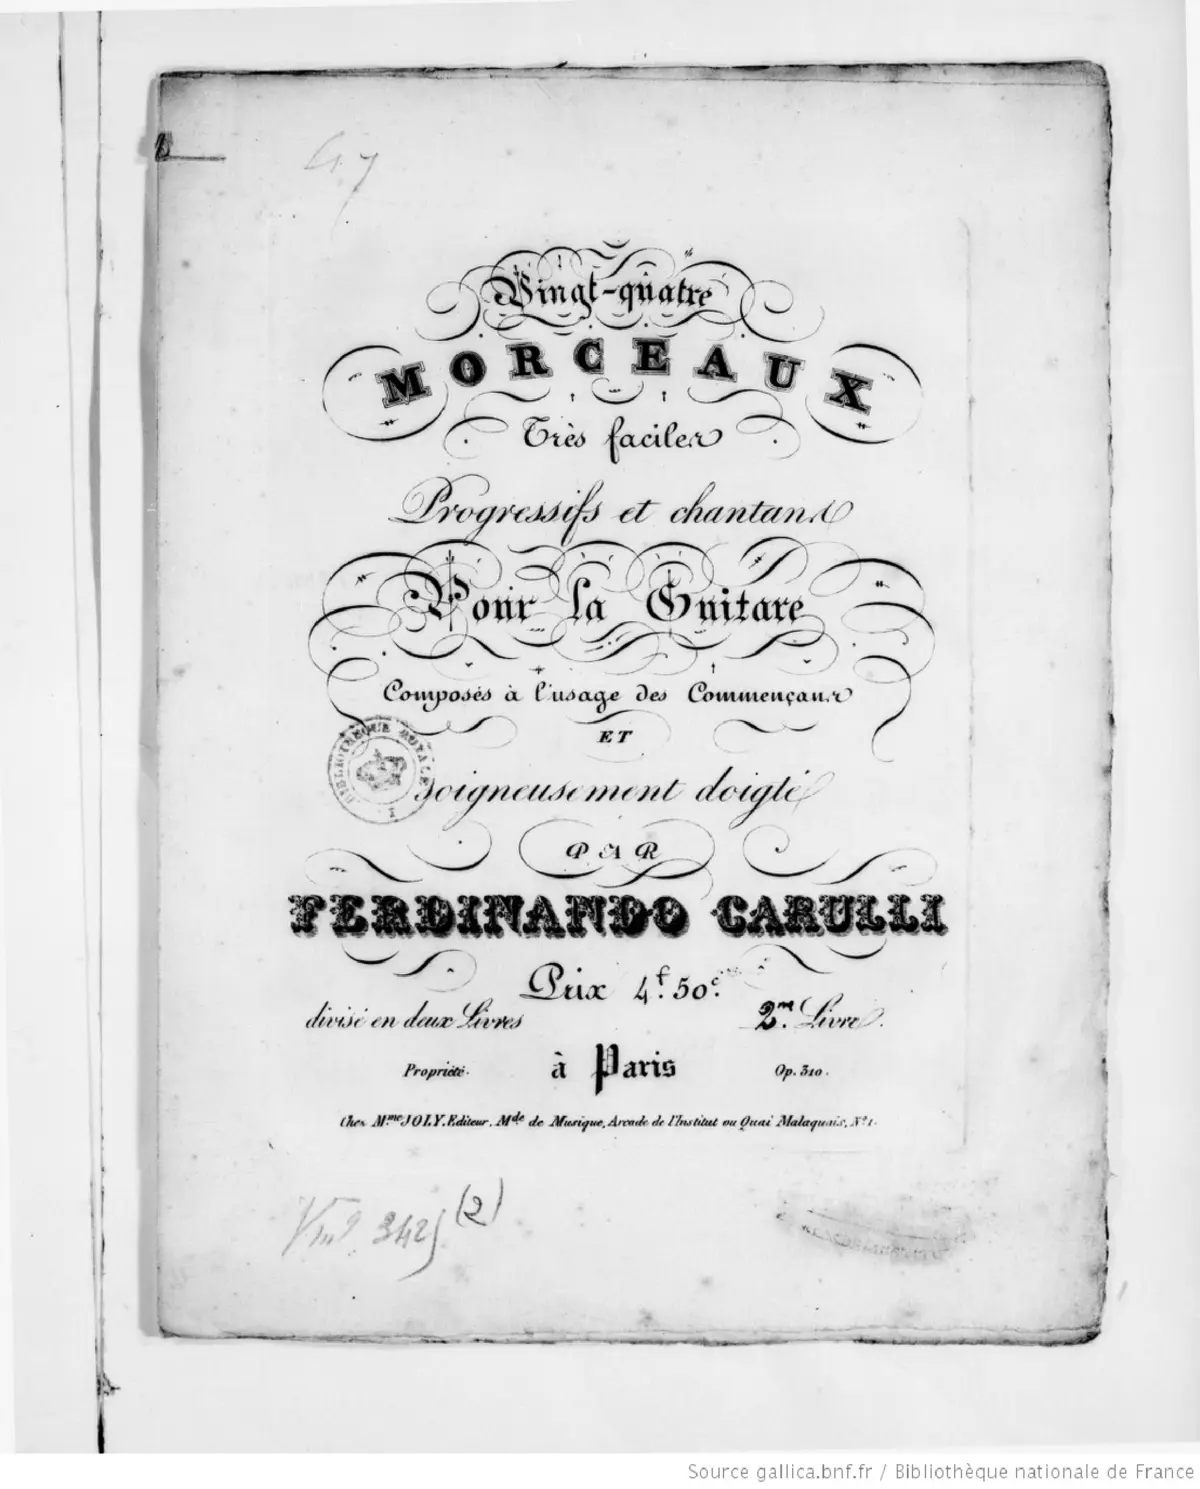 Vingt-quatre
MORCEAUX
Très faciles
Progressifs et chantans
Pour la Guitare
Composés à l'usage des Commençans
ET
soigneusement doigté
PAR
FERDINANDO CARULLI
Prix 4f. 50c.
divisé en deux Livres
2me. Livre.
Propriété.
à Paris
Op. 310.
Chez Mme JOLY, Editeur, Mde de Musique, Arcade de l'Institut ou Quai Malaquais, No 1.
BIBLIOTHÈQUE ROYALE
Vm9 3425 (2)
Source gallica.bnf.fr / Bibliothèque nationale de France